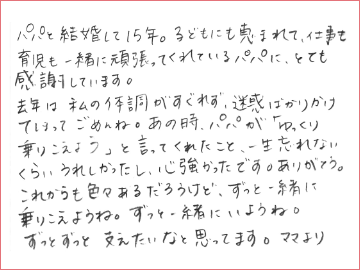 パパと結婚して15年。子どもにも恵まれて、仕事も
育児も一緒に頑張ってくれているパパに、とても
感謝しています。
去年は私の体調がすぐれず、迷惑ばかりかけ
てしまってごめんね。あの時、パパが「ゆっくり
乗りこえよう」と言ってくれたこと、一生忘れない
くらいうれしかったし、心強かったです。ありがとう。
これからも色々あるだろうけど、ずっと一緒に
乗りこえようね。ずっと一緒にいようね。
ずっとずっと支えたいなと思ってます。ママより